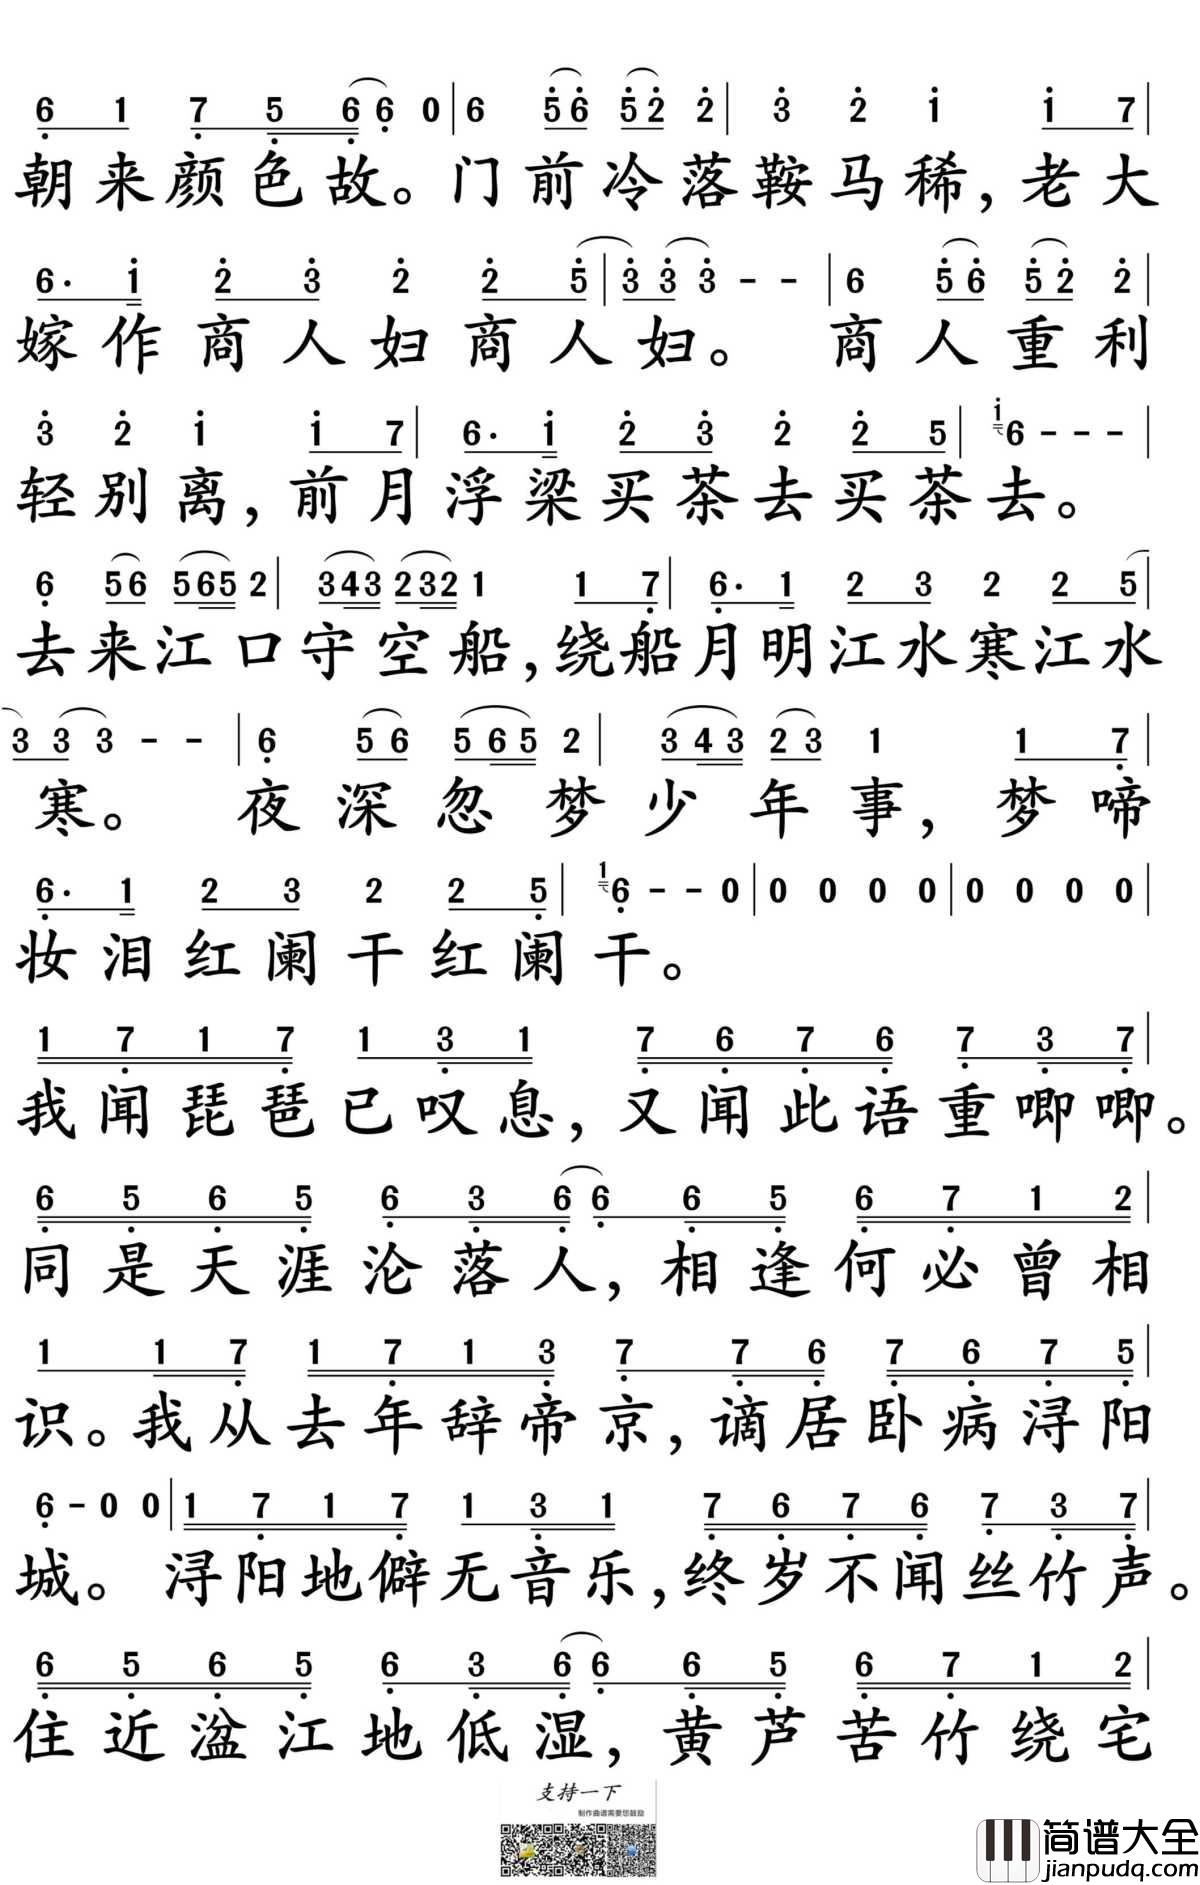 6 1 7 5 6 6 0 | 6 5 6 5 2 2 | 3 2 1 1 7 |
朝来颜色故。门前冷落鞍马稀，老大
6· 1 2 3 2 2 5 | 3 3 3 - - | 6 5 6 5 2 2 |
嫁作商人妇商人妇。商人重利
3 2 1 1 7 | 6· 1 2 3 2 2 5 | 1 6 - - - |
轻别离，前月浮梁买茶去买茶去。
6 5 6 5 6 5 2 | 3 4 3 2 3 2 1 1 7 | 6· 1 2 3 2 2 5 |
去来江口守空船，绕船月明江水寒江水
3 3 3 - - | 6 5 6 5 6 5 2 | 3 4 3 2 3 1 1 7 |
寒。夜深忽梦少年事，梦啼
6· 1 2 3 2 2 5 | 1 6 - - 0 | 0 0 0 0 | 0 0 0 0 |
妆泪红阑干红阑干。
1 7 1 7 1 3 1 7 6 7 6 7 3 7 |
我闻琵琶已叹息，又闻此语重唧唧。
6 5 6 5 6 3 6 6 6 5 6 7 1 2 |
同是天涯沦落人，相逢何必曾相
1 1 7 1 7 1 3 7 7 6 7 6 7 5 |
识。我从去年辞帝京，谪居卧病浔阳
6 - 0 0 | 1 7 1 7 1 3 1 7 6 7 6 7 3 7 |
城。浔阳地僻无音乐，终岁不闻丝竹声。
6 5 6 5 6 3 6 6 6 5 6 7 1 2 |
住近湓江地低湿，黄芦苦竹绕宅
支持一下
制作曲谱需要您鼓励
简谱大全
jianpudq.com